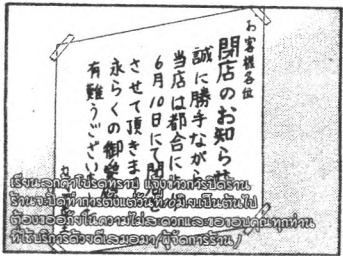 お客様各位
閉店のお知らせ
誠に勝手ながら
当店は都合に
6月10日にて閉
させて頂きま
永らくの御
有難うござい
เรียน ลูกค้าโปรดทราบ แจ้งข่าวการปิดร้าน
ร้านจะปิดทำการตั้งแต่วันที่ เป็นต้นไป
ต้องขออภัยในความไม่สะดวกและขอขอบคุณทุกท่าน
ที่ใช้บริการด้วยดีเสมอมา/ผู้จัดการร้าน/